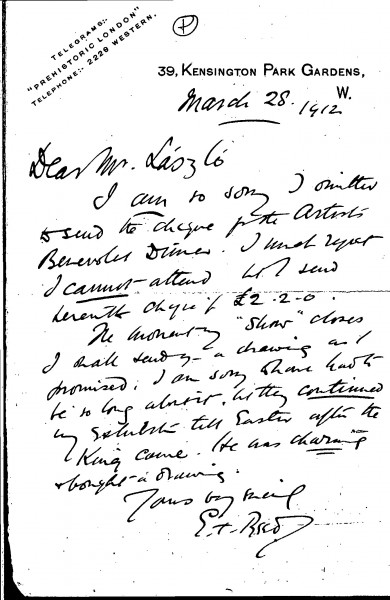 TELEGRAMS:-
"PREHISTORIC LONDON"
TELEPHONE:- 2228 WESTERN.
P
39, KENSINGTON PARK GARDENS,
W.
March 28. 1912
Dear Mr. László
I am so sorry I omitted
to send the cheque for the Artists
Benevolent Dinner. I much regret
I cannot attend but I send
herewith cheque of £2-2-0.
The moment my "Show" closes
I shall send you a drawing as I
promised. I am sorry to have had to
be so long about it, but they continued
my Exhibition till Easter after the
King came. He was charming
& bought a drawing.
Yours very sincerely
E. T. Reed